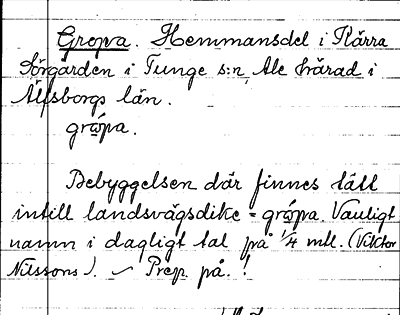 Gropa. Hemmansdel i Kärra
Sörgården i Tunge s:n, Ale härad i
Älfsborgs län.
grωpa.
Bebyggelsen där finnes tätt
intill landsvägsdike = grωpa. Vanligt
namn i dagligt tal på 1/4 mtl. (Viktor
Nilssons). ~ Prep. på. !